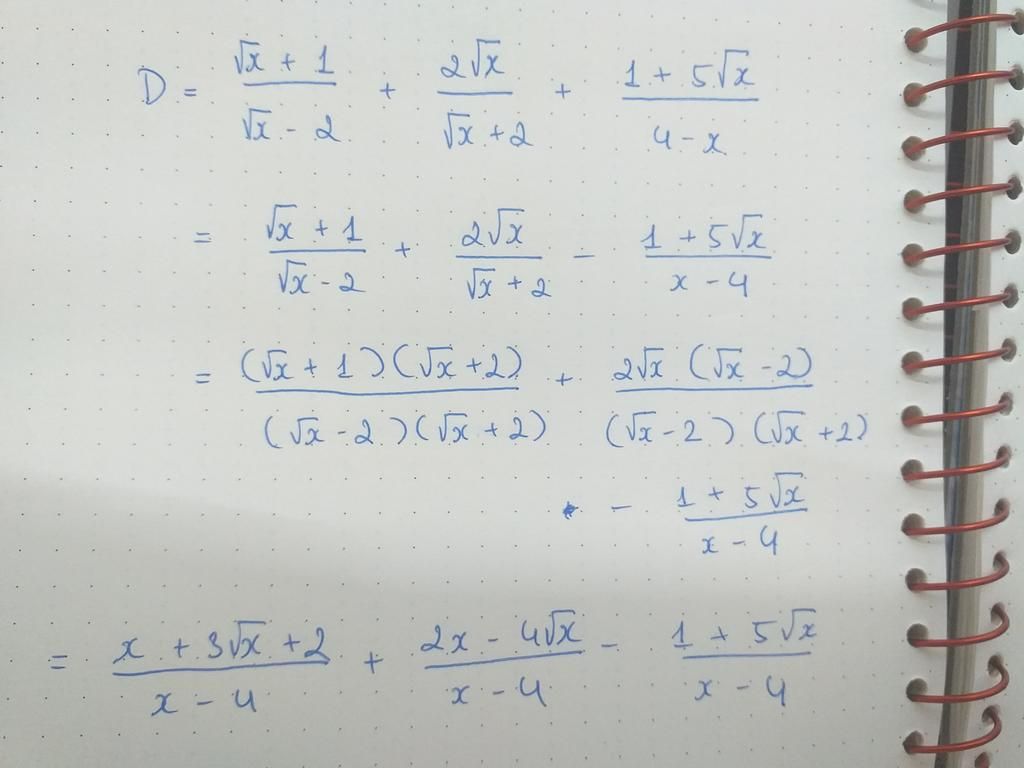 D = (√x + 1)/(√x - 2) + (2√x)/(√x + 2) + (1 + 5√x)/(4 - x)
= (√x + 1)/(√x - 2) + (2√x)/(√x + 2) - (1 + 5√x)/(x - 4)
= ((√x + 1)(√x + 2))/((√x - 2)(√x + 2)) + (2√x (√x - 2))/((√x - 2)(√x + 2))
- (1 + 5√x)/(x - 4)
= (x + 3√x + 2)/(x - 4) + (2x - 4√x)/(x - 4) - (1 + 5√x)/(x - 4)